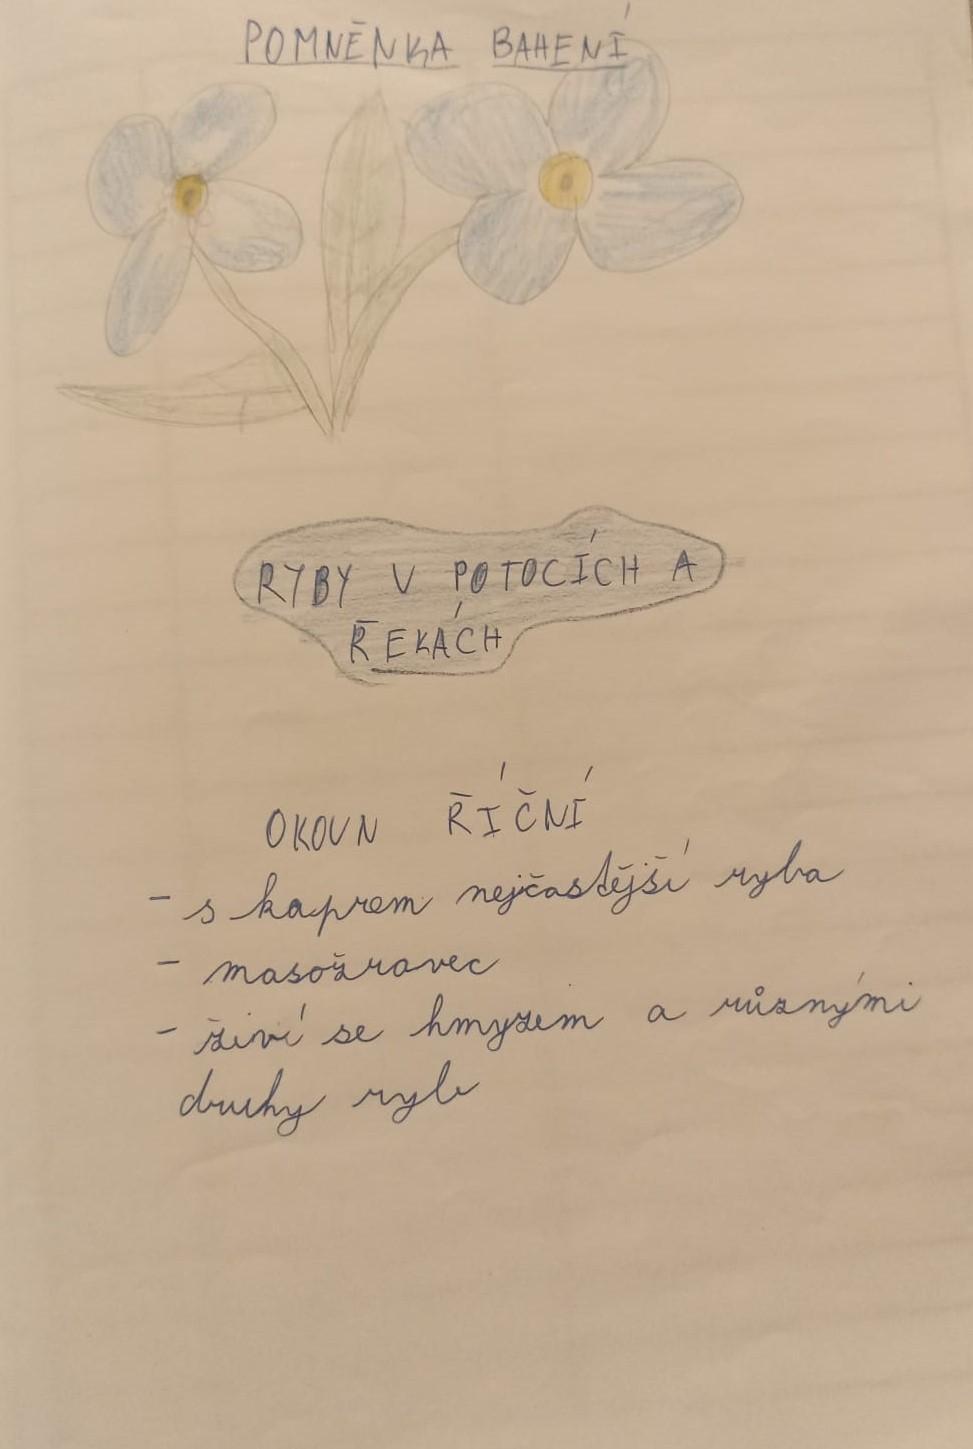 POMNĚNKA BAHENÍ
RYBY V POTOCÍCH A
ŘEKÁCH
OKOUN ŘÍČNÍ
- s kaprem nejčastější ryba
- masožravec
- živí se hmyzem a různými
druhy ryb